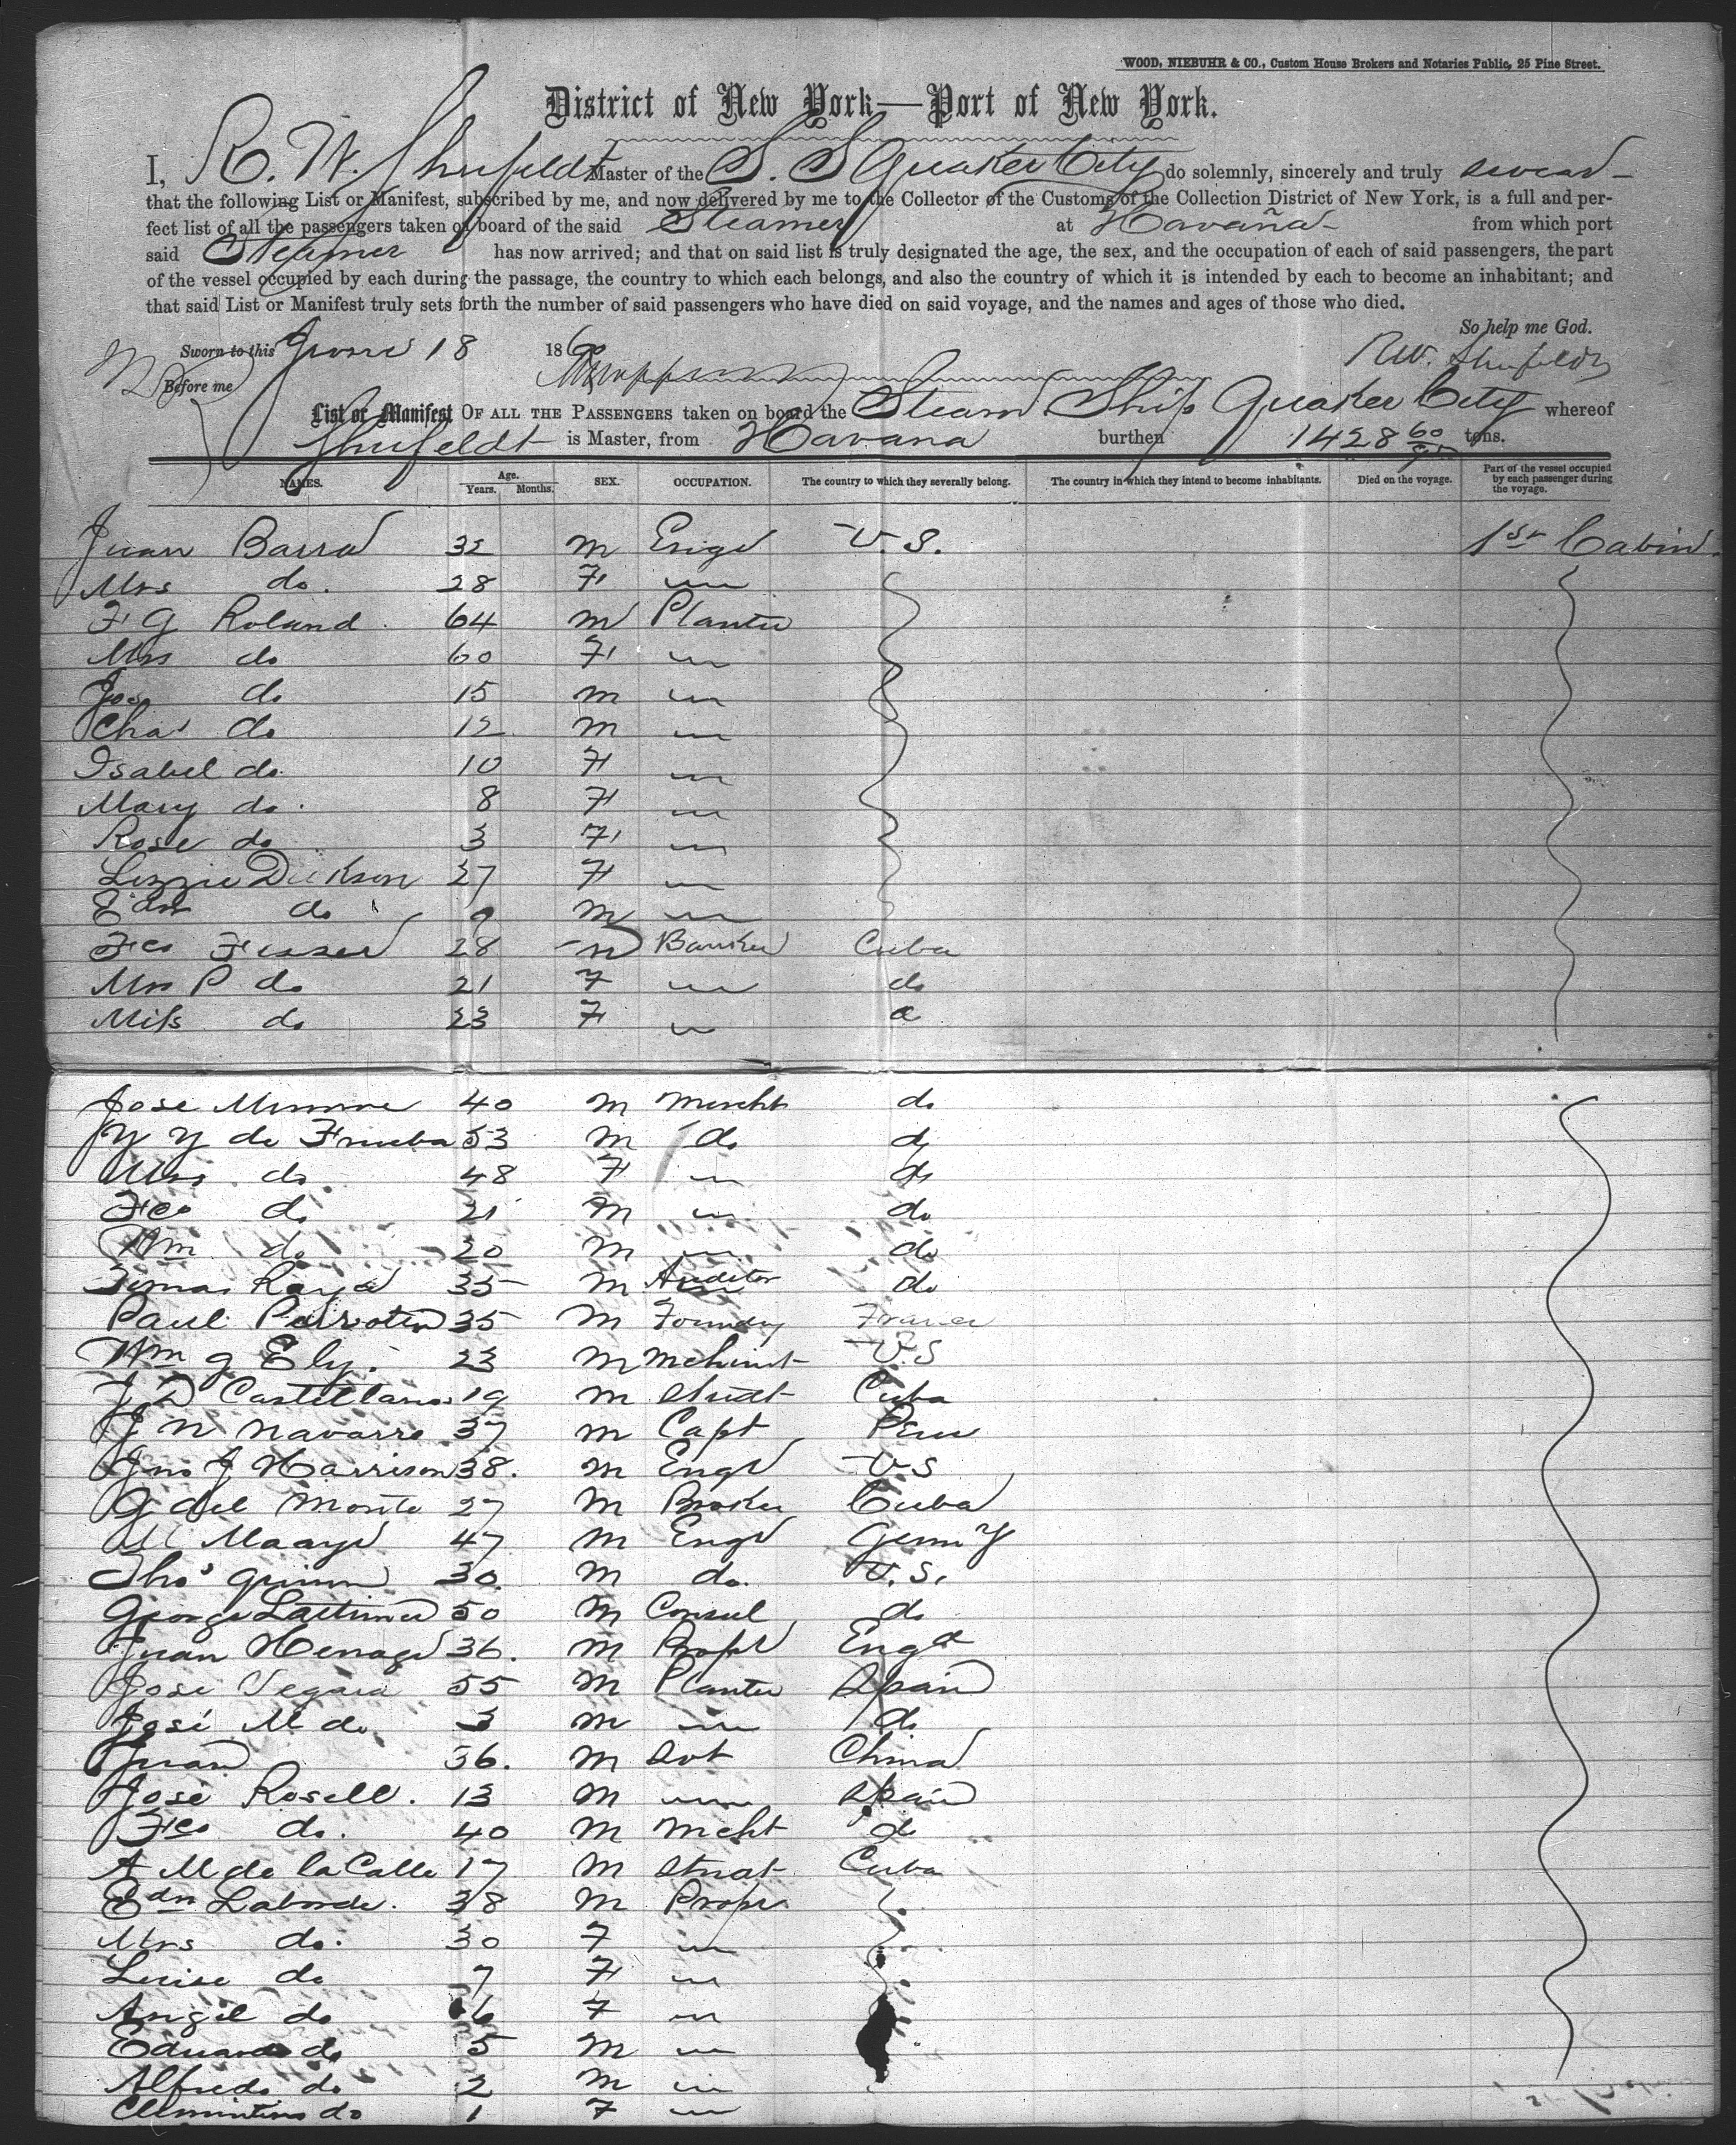 WOOD, NIEBUHR & CO., Custom House Brokers and Notaries Public, 25 Pine Street.
District of New York—Port of New York.
I, R. W. Shufeldt Master of the S. S Quaker City do solemnly, sincerely and truly swear
that the following List or Manifest, subscribed by me, and now delivered by me to the Collector of the Customs of the Collection District of New York, is a full and per-
fect list of all the passengers taken on board of the said Steamer at Havana from which port
said Steamer has now arrived; and that on said list is truly designated the age, the sex, and the occupation of each of said passengers, the part
of the vessel occupied by each during the passage, the country to which each belongs, and also the country of which it is intended by each to become an inhabitant; and
that said List or Manifest truly sets forth the number of said passengers who have died on said voyage, and the names and ages of those who died.
So help me God.
Sworn to this June 18 1860 R W. Shufeldt
Before me
List or Manifest OF ALL THE PASSENGERS taken on board the Steam Ship Quaker City whereof
Shufeldt is Master, from Havana burthen 1428 60/95 tons.
NAMES. Age. Years. Months. SEX. OCCUPATION. The country to which they severally belong. The country in which they intend to become inhabitants. Died on the voyage. Part of the vessel occupied by each passenger during the voyage.
Juan Barra 32 M Engr U. S. 1st Cabin
Mrs do. 28 F
F G Roland 64 M Planter
Mrs do 60 F
Jos do 15 M
Chas do 12 M
Isabel do. 10 F
Mary do. 8 F
Rose do 3 F
Lizzie Dickson 27 F
Edw do 9 M
Fco Fesser 28 M Banker Cuba
Mrs P do 21 F do
Miss do 23 F
Jose 40 M Mercht do
Y Y de Frueba 53 M do do
Mrs do 48 F do
Fco do 21 M do
Wm do 20 M do
Tomas 35 M Auditor do
Paul Perrotin 35 M Foundry France
Wm G Ely. 23 M Mchinst U.S
J D Castellanos 19 M Studt Cuba
J N Navarro 37 M Capt Peru
Jno J Harrison 38. M Engr U S
G del Monte 27 M Broker Cuba
M Maayer 47 M Engr Germy
Thos Grimm 30. M do. U. S.
George Lattimer 50 M Consul do
Juan 36. M Propr Engd
Jose Vegara 55 M Planter Spain
José M do. 3 M do
Juan 36. M Svt China
José Rosell. 13 M Spain
Fco do. 40 M Mcht do
A M de la Calle 17 M Studt Cuba
Edw Laborde. 38 M Propr
Mrs do. 30 F
Luise do 7 F
Angel do 6 F
Eduardo do 5 M
Alfredo do 2 M
do 1 F